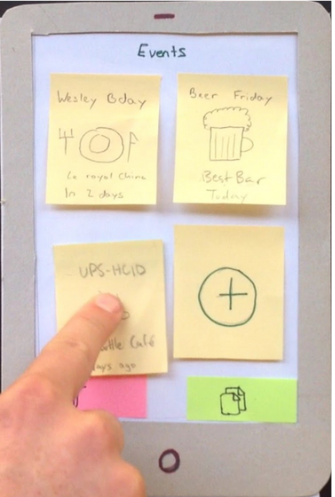 Events
Wesley Bday
Le royal China
In 2 days
Beer Friday
Best Bar
Today
UPS-HCID
Café
ago